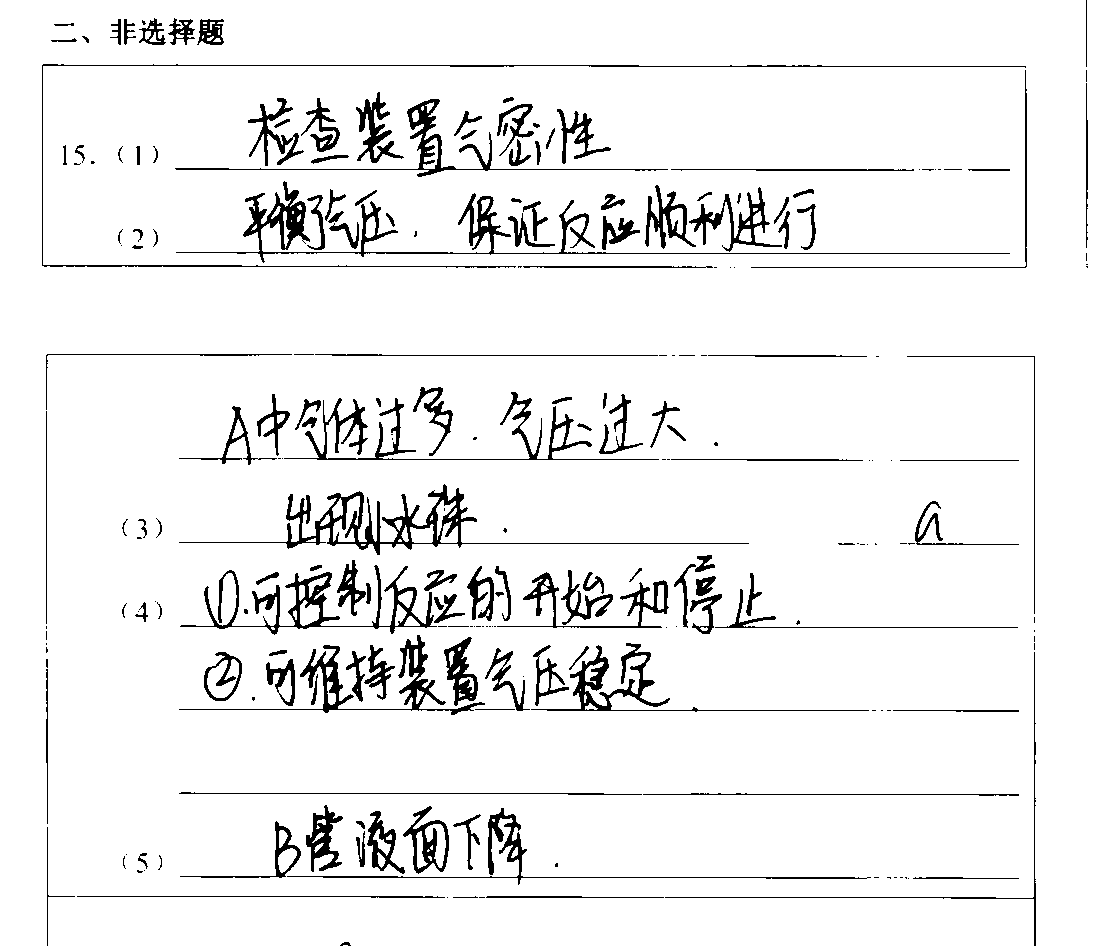 二、非选择题
15.（1） 检查装置气密性
（2） 平衡气压. 保证反应顺利进行
A中气体过多. 气压过大.
（3） 出现小水珠. a
（4） ①.可控制反应的开始和停止.
②.可维持装置气压稳定.
（5） B管液面下降.